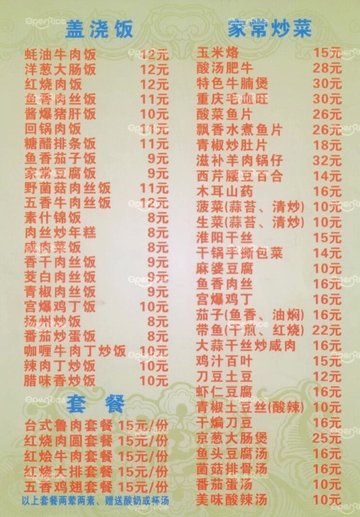 盖浇饭
蚝油牛肉饭 12元
洋葱大肠饭 12元
红烧肉饭 12元
鱼香肉丝饭 11元
酱爆猪肝饭 10元
回锅肉饭 11元
糖醋排条饭 11元
鱼香茄子饭 9元
家常豆腐饭 9元
野菌菇肉丝饭 11元
五香牛肉丝饭 12元
素什锦饭 8元
肉丝炒年糕 8元
咸肉菜饭 8元
香干肉丝饭 9元
茭白肉丝饭 9元
青椒肉丝饭 9元
宫爆鸡丁饭 10元
扬州炒饭 8元
番茄炒蛋饭 8元
咖喱牛肉丁炒饭 10元
辣肉丁炒饭 10元
腊味香炒饭 10元
套餐
台式鲁肉套餐 15元/份
红烧肉圆套餐 15元/份
红烩牛肉套餐 15元/份
红烧大排套餐 15元/份
五香鸡翅套餐 15元/份
以上套餐两荤两素、赠送酸奶或杯汤
家常炒菜
玉米烙 15元
酸汤肥牛 28元
特色牛腩煲 30元
重庆毛血旺 30元
酸菜鱼片 26元
飘香水煮鱼片 26元
青椒炒肚片 18元
滋补羊肉锅仔 32元
西芹腰豆百合 14元
木耳山药 16元
菠菜(蒜苔、清炒) 10元
生菜(蒜苔、清炒) 10元
淮阳干丝 15元
干锅手撕包菜 14元
麻婆豆腐 10元
鱼香肉丝 16元
宫爆鸡丁 16元
茄子(鱼香、油焖) 16元
带鱼(干煎、红烧) 22元
大蒜干丝炒咸肉 16元
鸡汁百叶 15元
刀豆土豆 12元
虾仁豆腐 16元
青椒土豆丝(酸辣) 10元
干煸刀豆 16元
京葱大肠煲 25元
鱼头豆腐汤 16元
菌菇排骨汤 16元
番茄蛋汤 10元
美味酸辣汤 10元